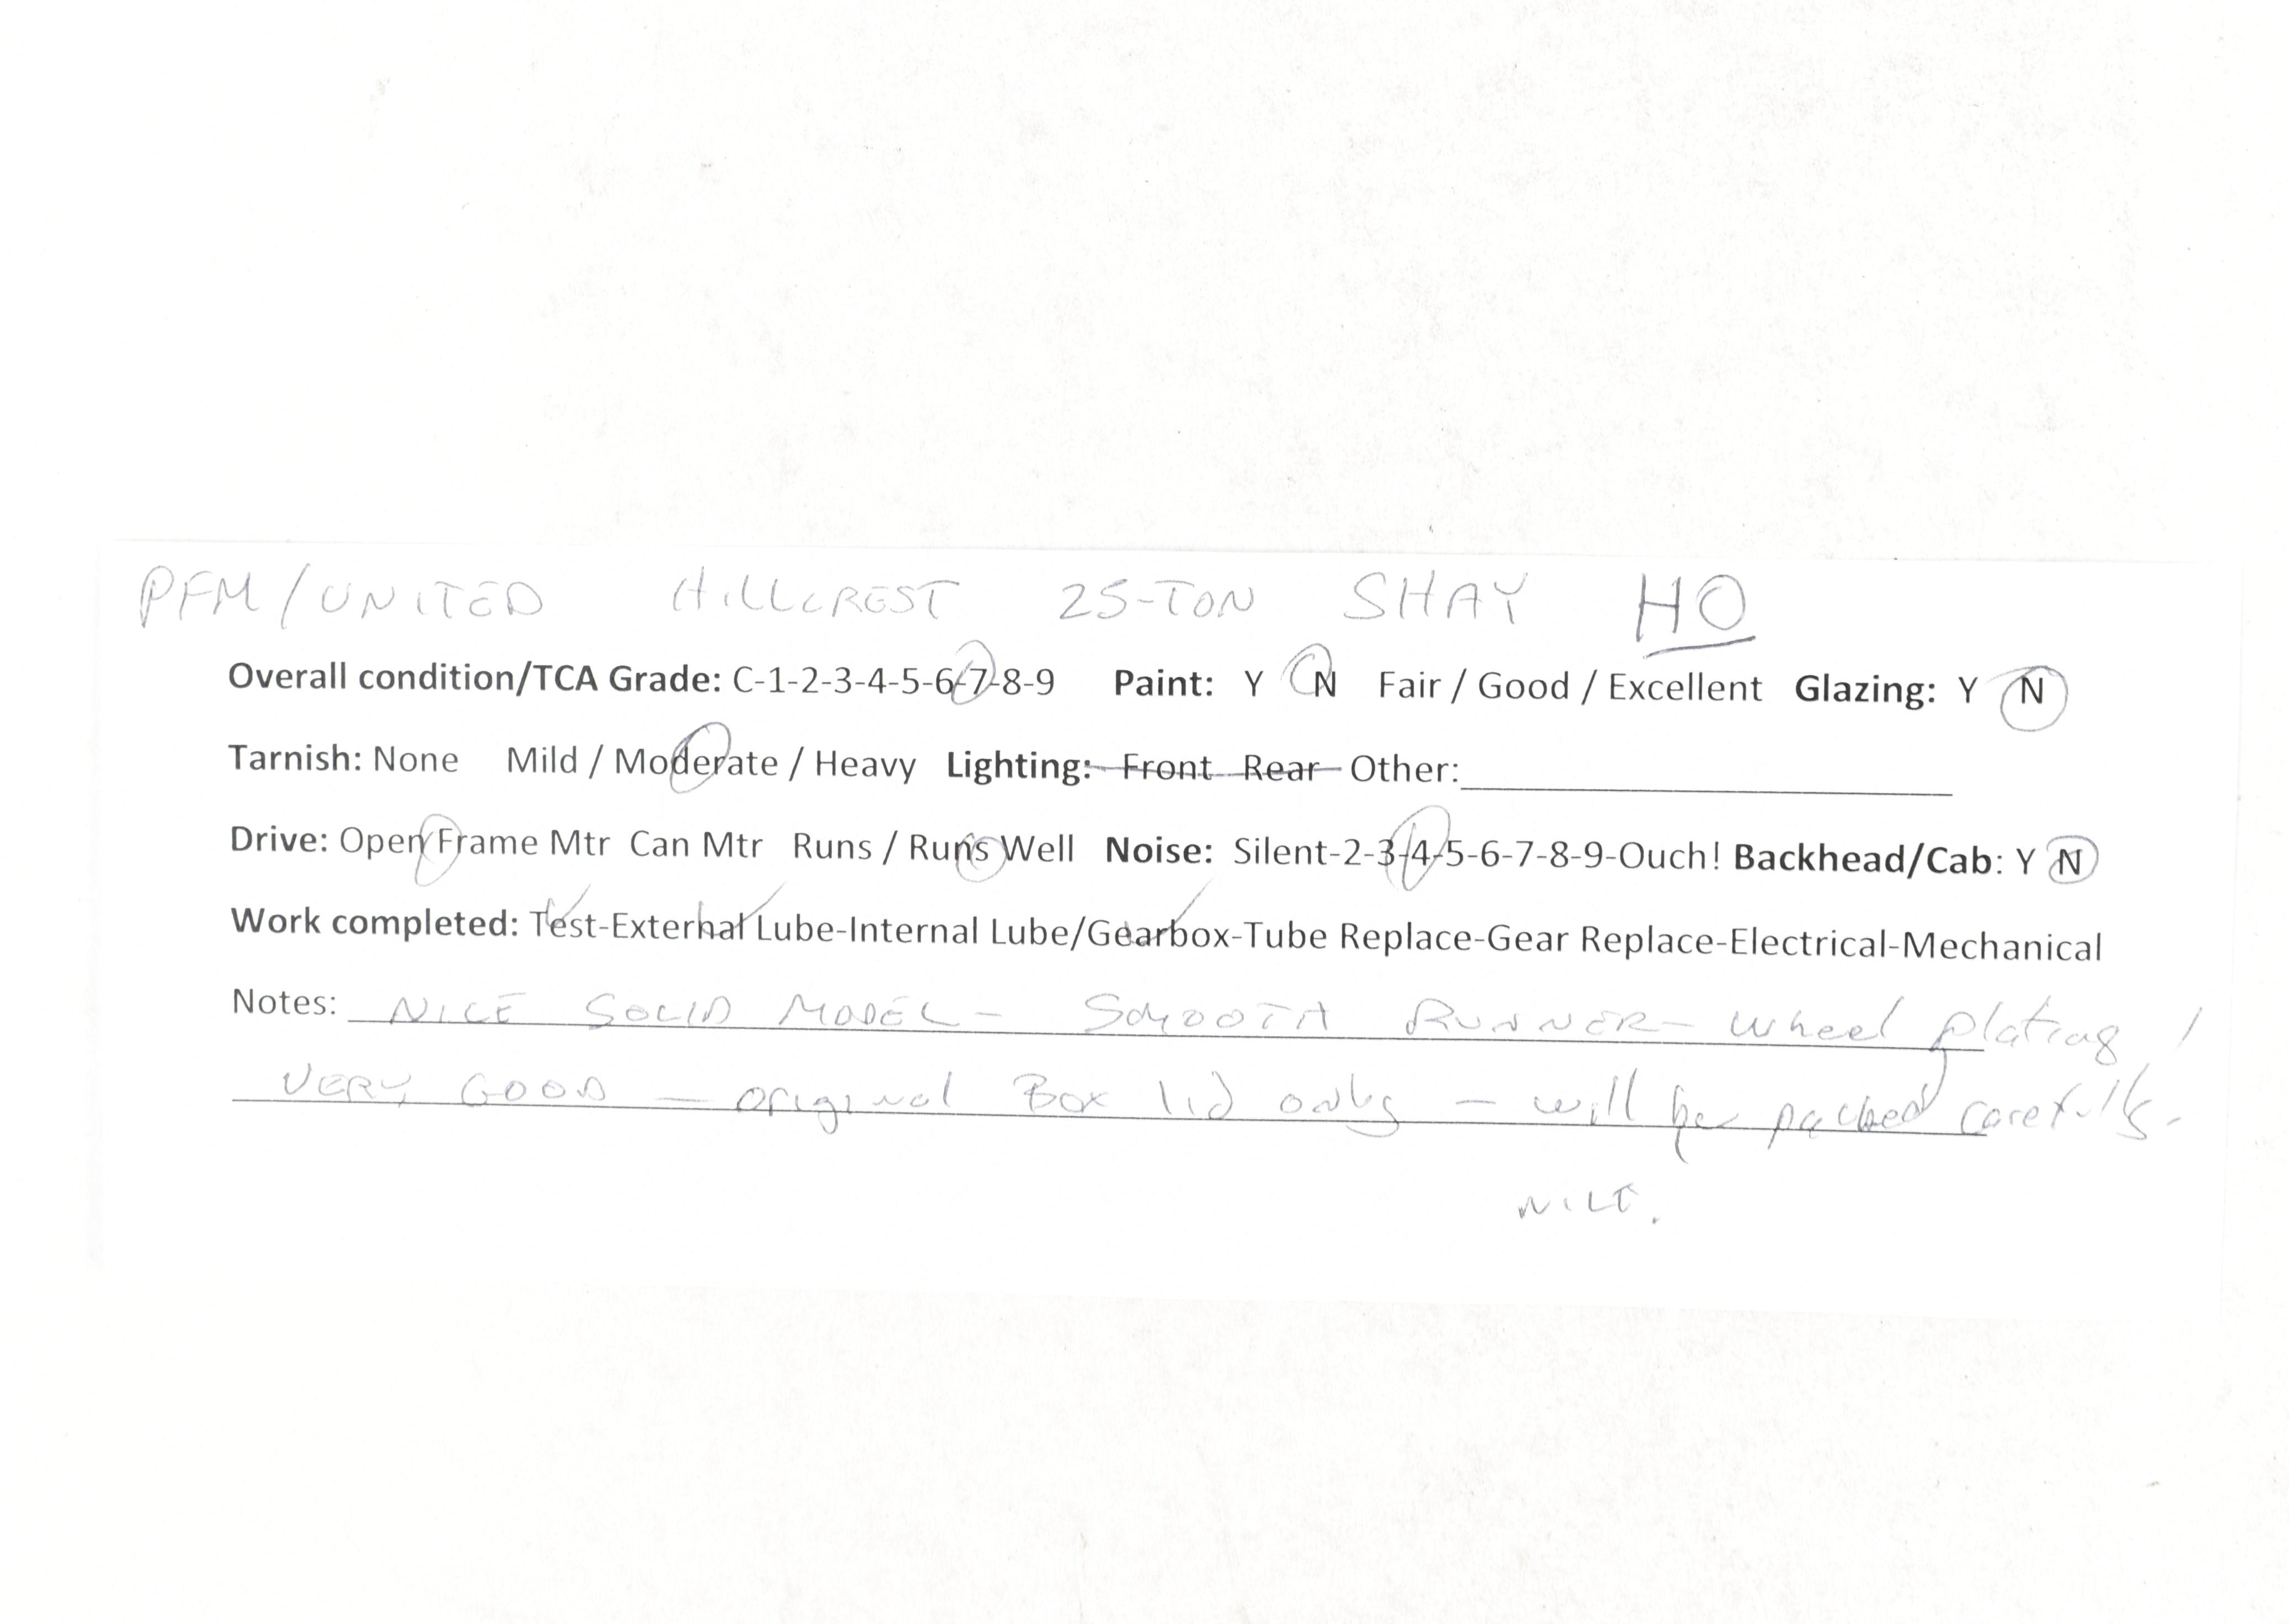 PFM/UNITED HILLCREST 25-TON SHAY HO
Overall condition/TCA Grade: C-1-2-3-4-5-6-7-8-9 Paint: Y N Fair / Good / Excellent Glazing: Y N
Tarnish: None Mild / Moderate / Heavy Lighting: Front Rear Other:
Drive: Open Frame Mtr Can Mtr Runs / Runs Well Noise: Silent-2-3-4-5-6-7-8-9-Ouch! Backhead/Cab: Y N
Work completed: Test-External Lube-Internal Lube/Gearbox-Tube Replace-Gear Replace-Electrical-Mechanical
Notes: NICE SOLID MODEL - SMOOTH RUNNER - wheel plating /
VERY GOOD - original Box lid only - will be packed carefully.
NICE.